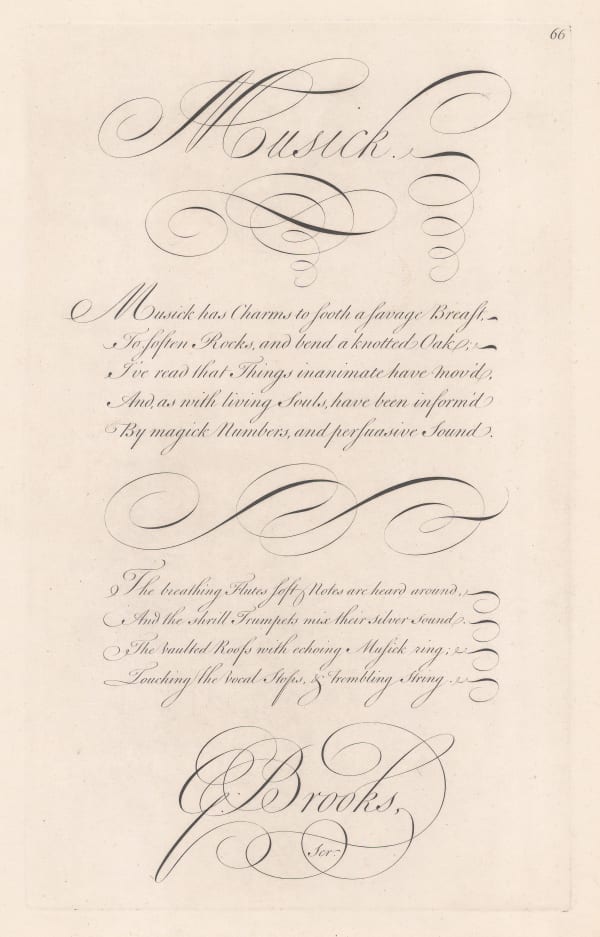 66
Musick.
Musick has Charms to sooth a savage Breast,
To soften Rocks, and bend a knotted Oak;
I've read that Things inanimate have mov'd,
And, as with living Souls, have been inform'd
By magick Numbers, and persuasive Sound.
The breathing Flutes soft Notes are heard around,
And the shrill Trumpets mix their silver Sound.
The vaulted Roofs with echoing Musick ring;
Touching the vocal Stops, & trembling String.
G: Brooks,
Scr.